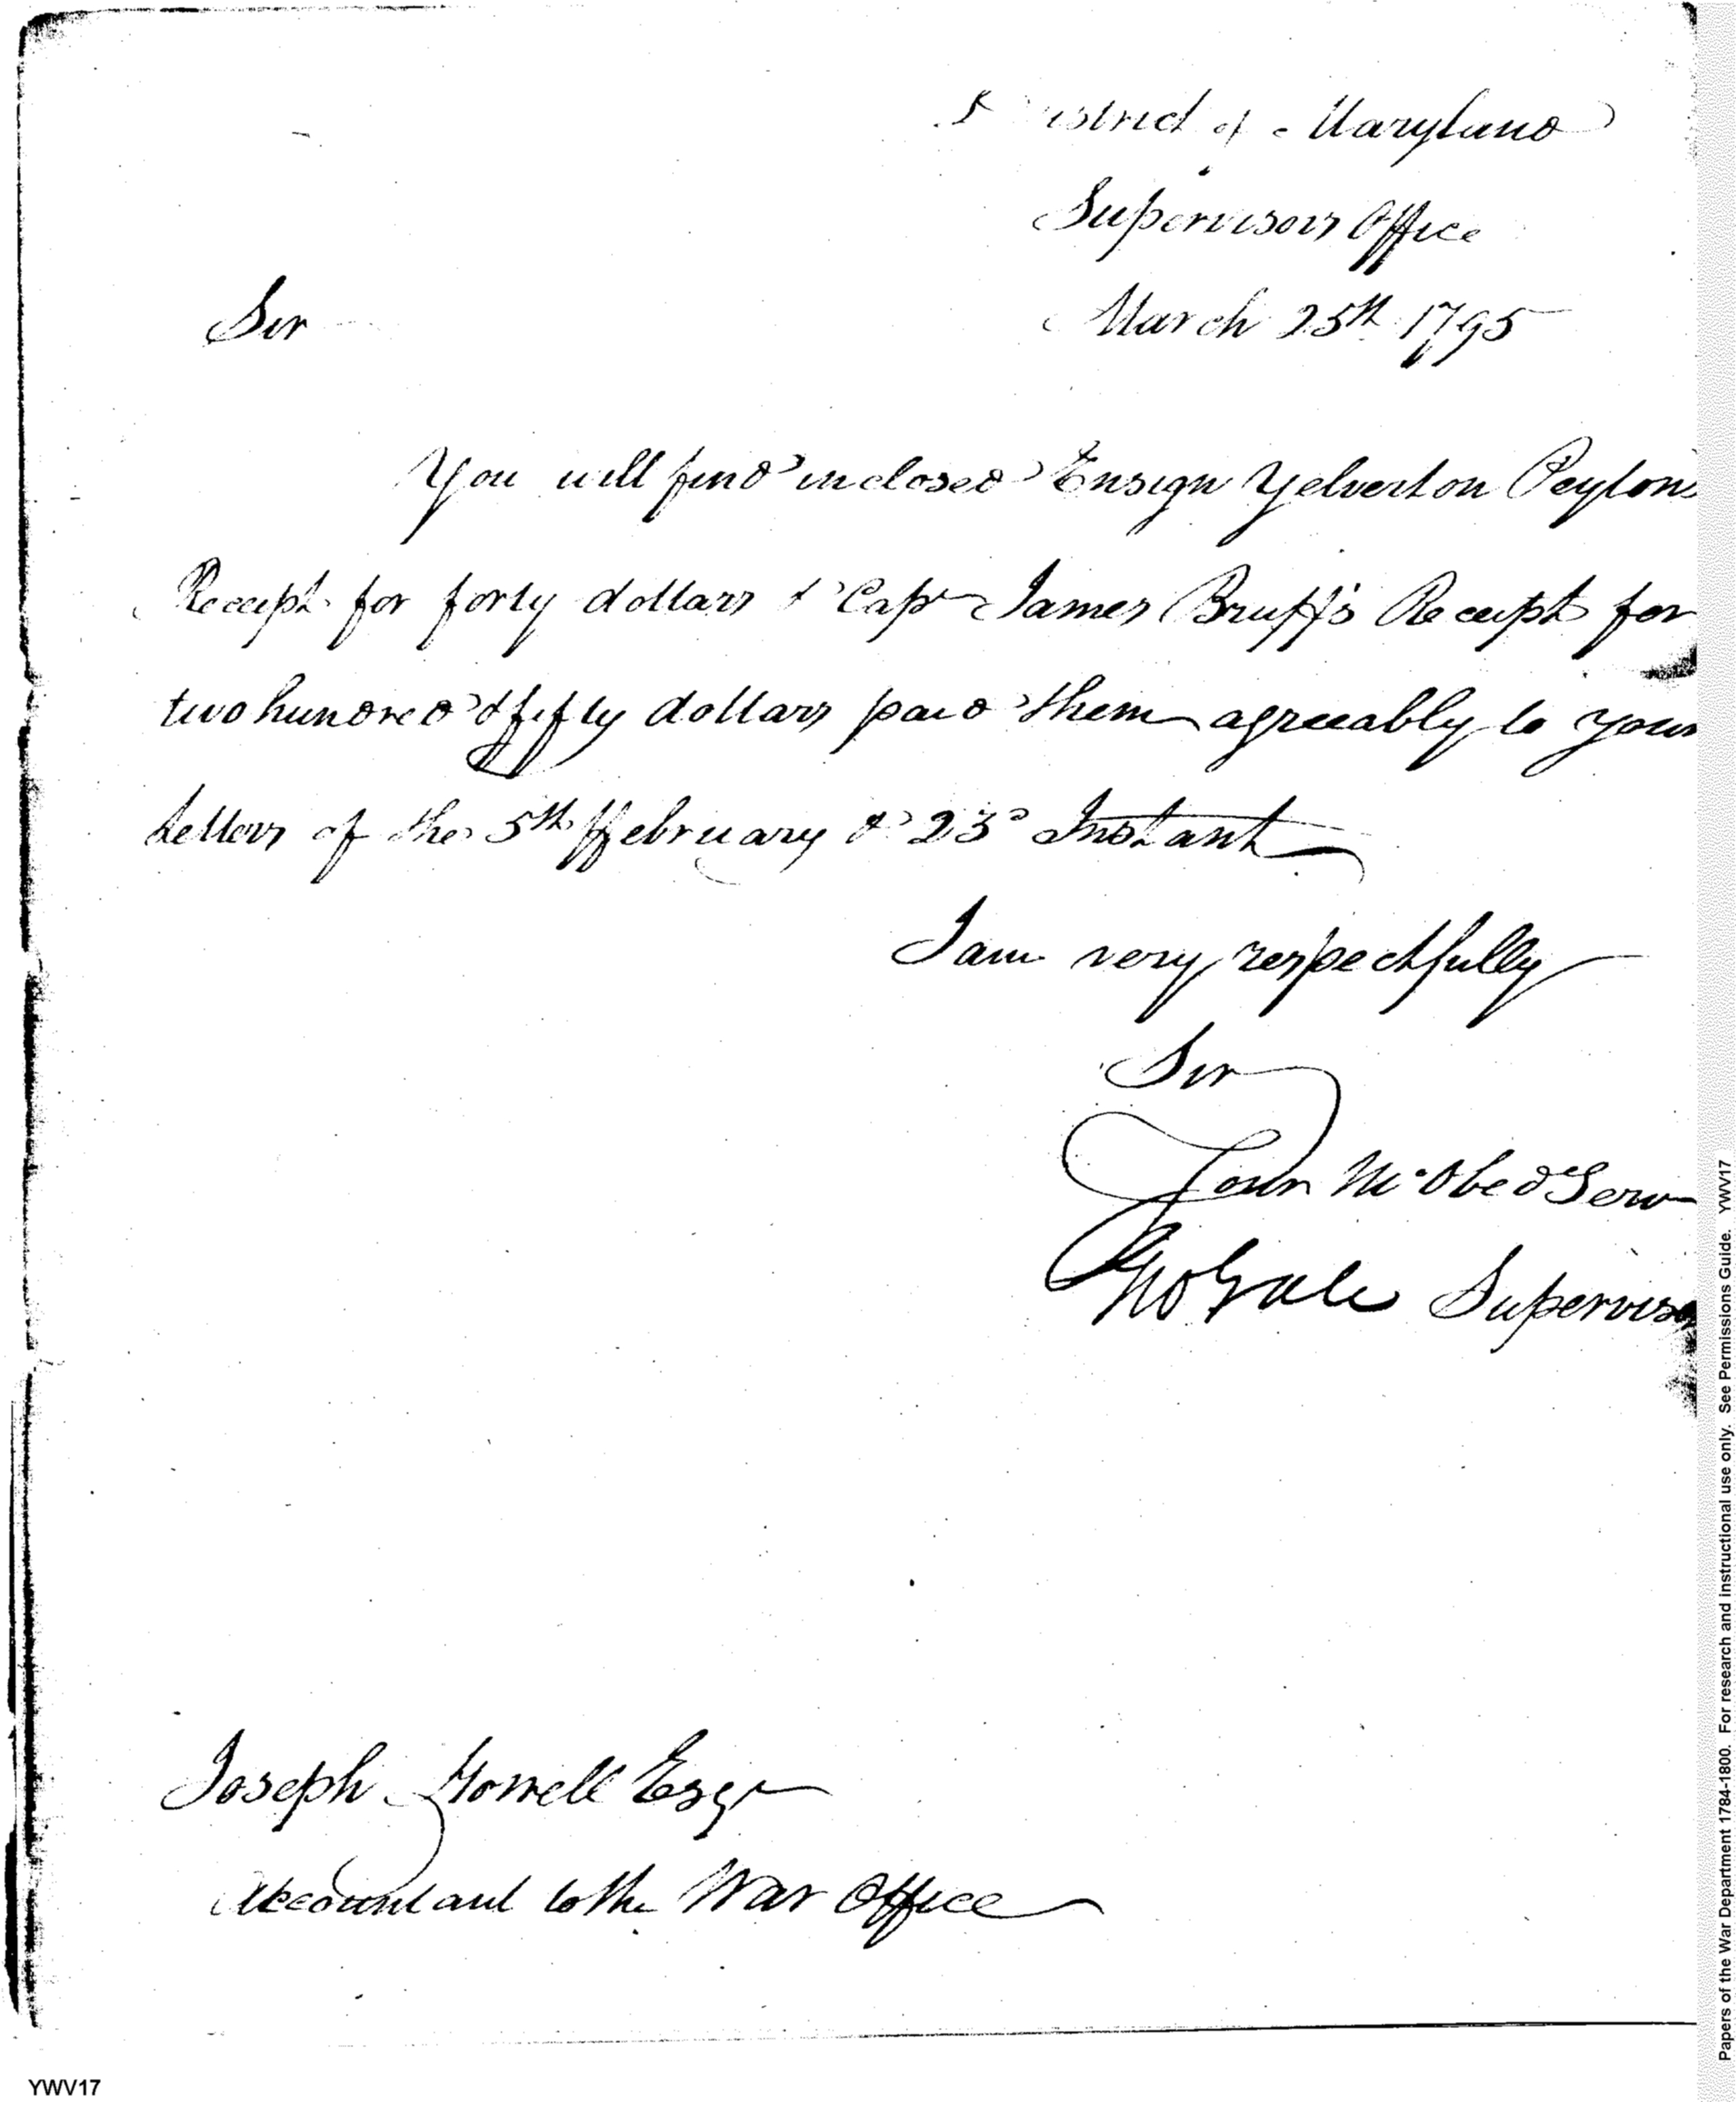 District of Maryland
Supervisors Office
March 25th 1795
Sir
You will find inclosed Ensign Yelverton Peytons
Receipt for forty dollars & Capt James Bruff's Receipt for
two hundred & fifty dollars paid them agreeably to your
letters of the 5th ffebruary & 23d Instant
I am very respectfully
Sir
Your Mo Obed Serv
Geo Gale Supervisor
Joseph Howell Esqr
Accountant to the War Office
YWV17
Papers of the War Department 1784-1800. For research and instructional use only. See Permissions Guide. YWV17